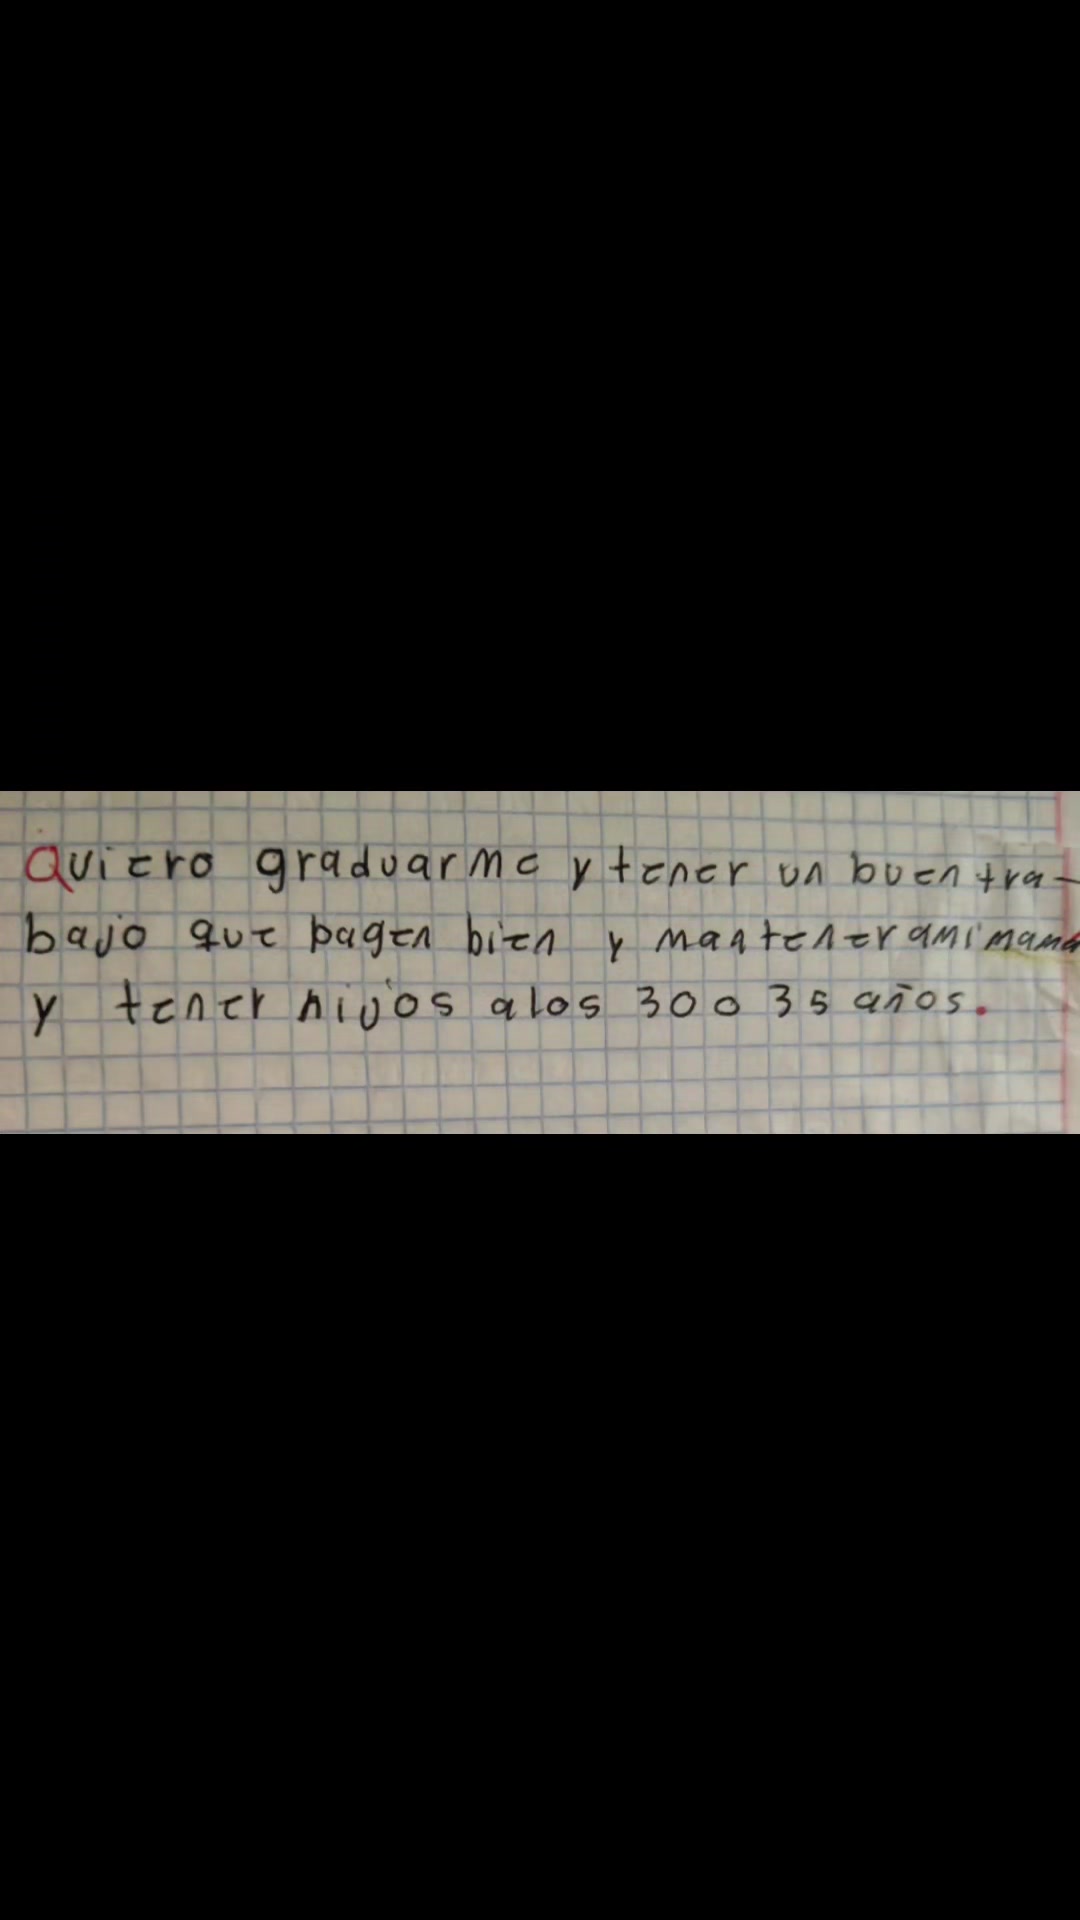 Quiero graduarme y tener un buen tra-
bajo que pagen bien y mantener a mi mama
y tener hijos a los 30 o 35 años.